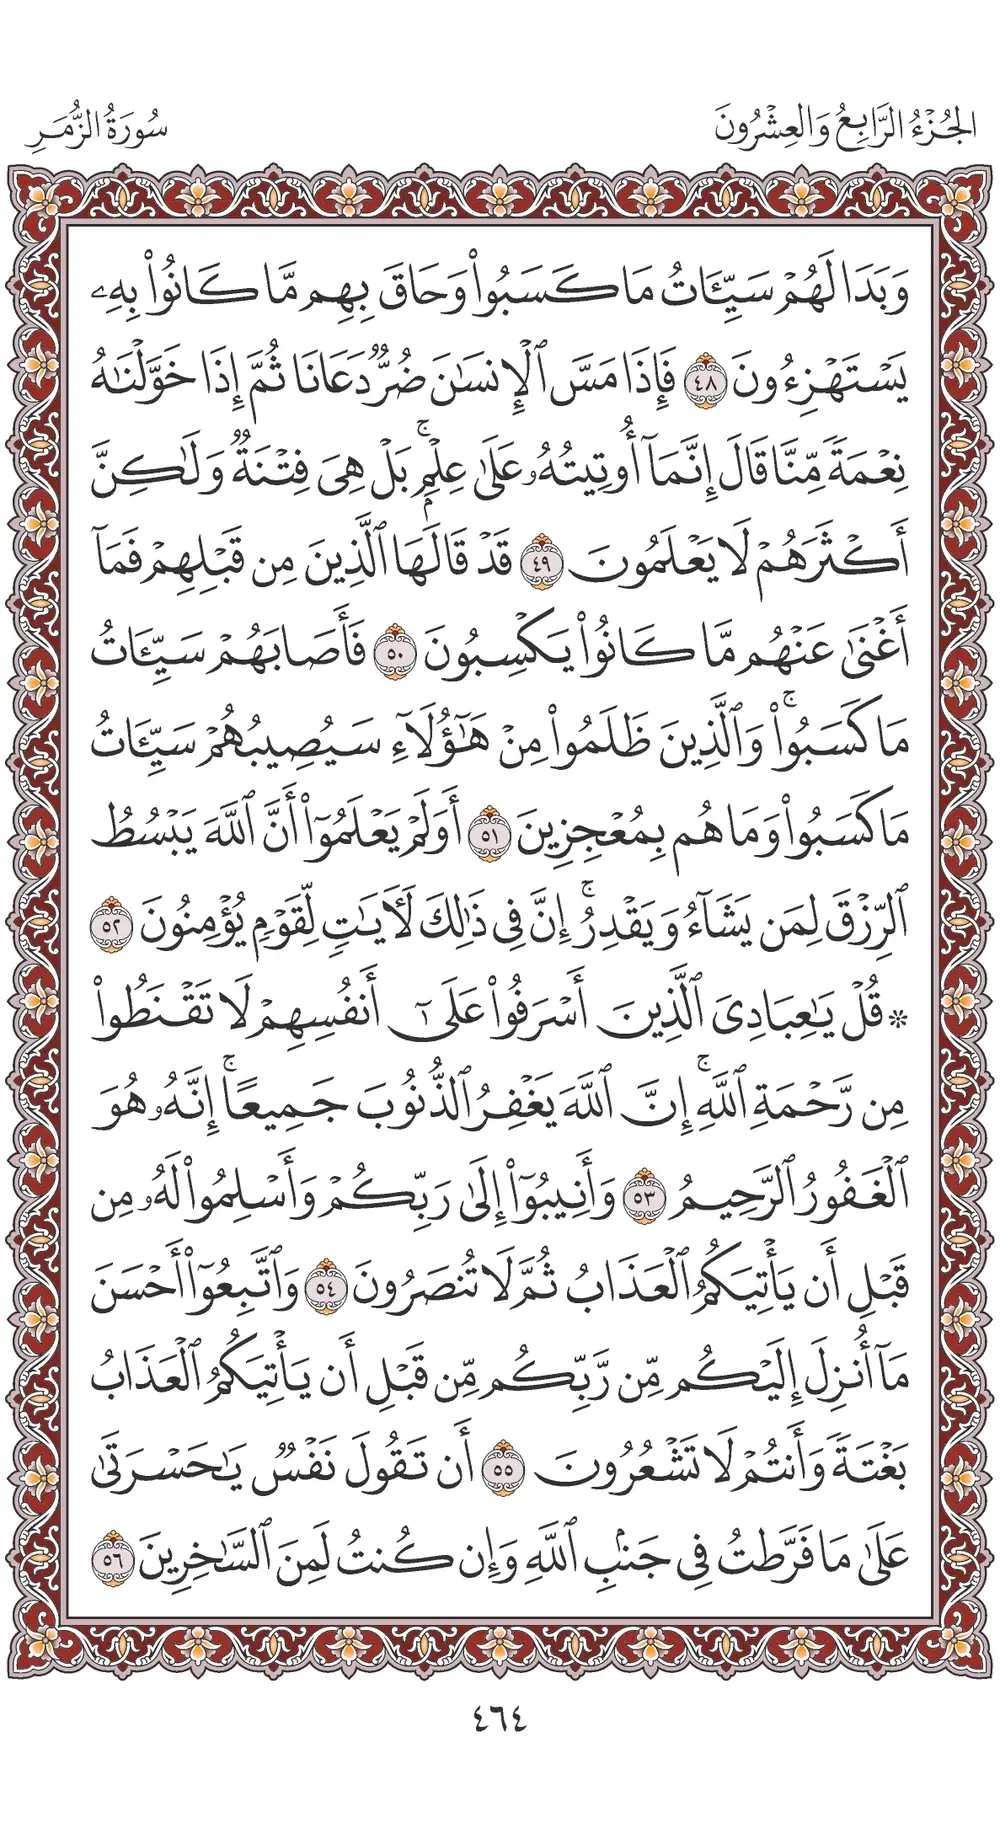 الجُزْءُ الرَّابِعُ وَالعِشْرُونَ
سُورَةُ الزُّمَرِ
وَبَدَا لَهُمْ سَيِّـَٔاتُ مَا كَسَبُوا۟ وَحَاقَ بِهِم مَّا كَانُوا۟ بِهِۦ
يَسْتَهْزِءُونَ ٤٨ فَإِذَا مَسَّ ٱلْإِنسَـٰنَ ضُرٌّ دَعَانَا ثُمَّ إِذَا خَوَّلْنَـٰهُ
نِعْمَةً مِّنَّا قَالَ إِنَّمَآ أُوتِيتُهُۥ عَلَىٰ عِلْمٍۭ ۚ بَلْ هِىَ فِتْنَةٌ وَلَـٰكِنَّ
أَكْثَرَهُمْ لَا يَعْلَمُونَ ٤٩ قَدْ قَالَهَا ٱلَّذِينَ مِن قَبْلِهِمْ فَمَآ
أَغْنَىٰ عَنْهُم مَّا كَانُوا۟ يَكْسِبُونَ ٥٠ فَأَصَابَهُمْ سَيِّـَٔاتُ
مَا كَسَبُوا۟ ۚ وَٱلَّذِينَ ظَلَمُوا۟ مِنْ هَـٰٓؤُلَآءِ سَيُصِيبُهُمْ سَيِّـَٔاتُ
مَا كَسَبُوا۟ وَمَا هُم بِمُعْجِزِينَ ٥١ أَوَلَمْ يَعْلَمُوٓا۟ أَنَّ ٱللَّهَ يَبْسُطُ
ٱلرِّزْقَ لِمَن يَشَآءُ وَيَقْدِرُ ۚ إِنَّ فِى ذَٰلِكَ لَـَٔايَـٰتٍ لِّقَوْمٍ يُؤْمِنُونَ ٥٢
۞ قُلْ يَـٰعِبَادِىَ ٱلَّذِينَ أَسْرَفُوا۟ عَلَىٰٓ أَنفُسِهِمْ لَا تَقْنَطُوا۟
مِن رَّحْمَةِ ٱللَّهِ ۚ إِنَّ ٱللَّهَ يَغْفِرُ ٱلذُّنُوبَ جَمِيعًا ۚ إِنَّهُۥ هُوَ
ٱلْغَفُورُ ٱلرَّحِيمُ ٥٣ وَأَنِيبُوٓا۟ إِلَىٰ رَبِّكُمْ وَأَسْلِمُوا۟ لَهُۥ مِن
قَبْلِ أَن يَأْتِيَكُمُ ٱلْعَذَابُ ثُمَّ لَا تُنصَرُونَ ٥٤ وَٱتَّبِعُوٓا۟ أَحْسَنَ
مَآ أُنزِلَ إِلَيْكُم مِّن رَّبِّكُم مِّن قَبْلِ أَن يَأْتِيَكُمُ ٱلْعَذَابُ
بَغْتَةً وَأَنتُمْ لَا تَشْعُرُونَ ٥٥ أَن تَقُولَ نَفْسٌ يَـٰحَسْرَتَىٰ
عَلَىٰ مَا فَرَّطتُ فِى جَنۢبِ ٱللَّهِ وَإِن كُنتُ لَمِنَ ٱلسَّـٰخِرِينَ ٥٦
٤٦٤